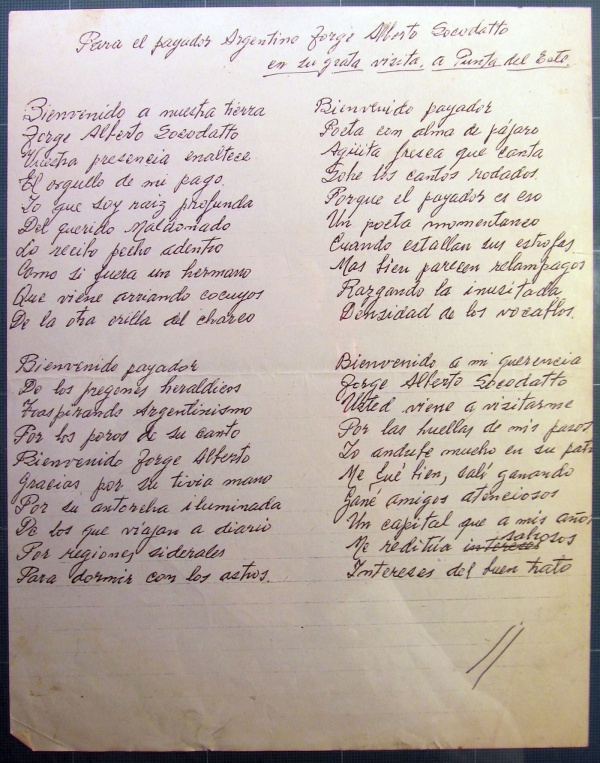 Para el payador Argentino Jorge Alberto Socodatto
en su grata visita, a Punta del Este.
Bienvenido a nuestra tierra
Jorge Alberto Socodatto
Vuestra presencia enaltece
El orgullo de mi pago.
Yo que soy raiz profunda
Del querido Maldonado
Lo recibo pecho adentro
Como si fuera un hermano
Que viene arriando cocuyos
De la otra orilla del charco
Bienvenido payador
De los pregones heraldicos
Traspirando Argentinismo
Por los poros de su canto
Bienvenido Jorge Alberto
Gracias por su tivia mano
Por su antorcha iluminada
De los que viajan a diario
Por regiones siderales
Para dormir con los astros.
Bienvenido payador
Poeta con alma de pájaro
Agüita fresca que canta
Sobre los cantos rodados.
Porque el payador es eso
Un poeta momentaneo
Cuando estallan sus estrofas
Mas bien parecen relampagos
Razgando la inusitada
Densidad de los vocablos.
Bienvenido a mi querencia
Jorge Alberto Socodatto
Usted viene a visitarme
Por las huellas de mis pasos
Yo anduve mucho en su
Me fué bien, salí ganando
Gané amigos atenciosos
Un capital que a mis años
Me reditúa intereses sabrosos
Intereses del buen trato